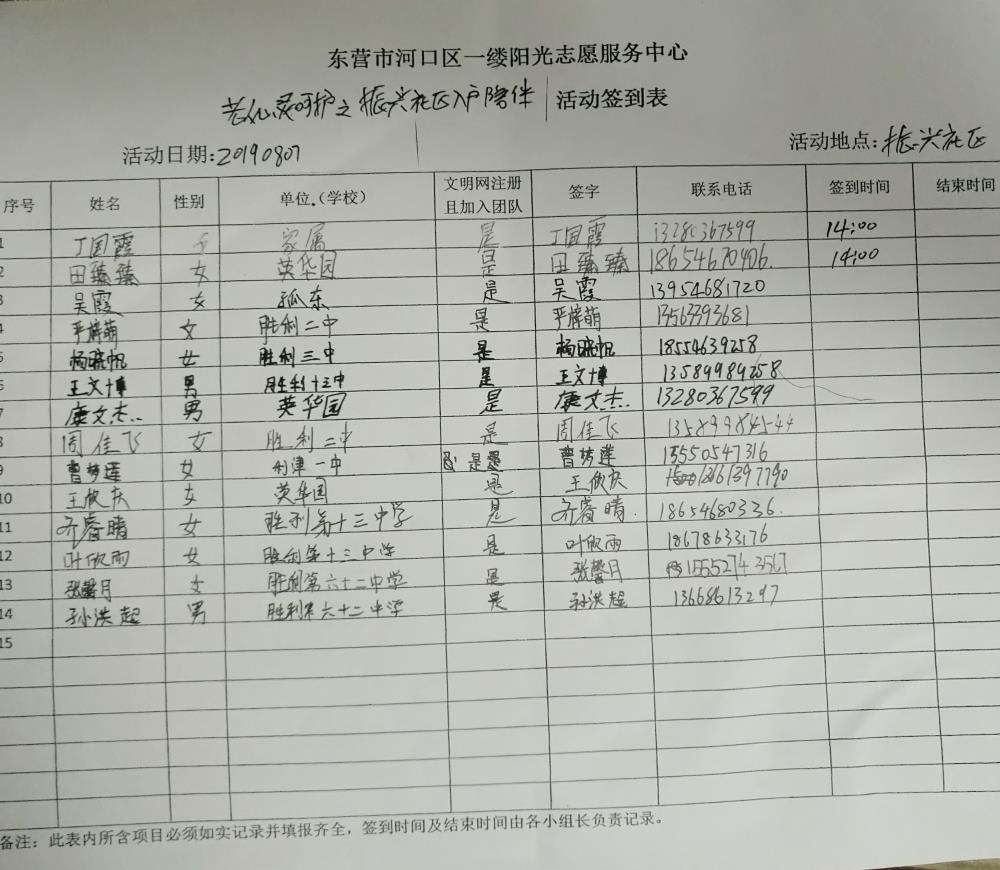 东营市河口区一缕阳光志愿服务中心
老人心灵呵护之振兴社区入户陪伴 活动签到表
活动日期:20190807 活动地点:振兴社区
序号 姓名 性别 单位.(学校) 文明网注册且加入团队 签字 联系电话 签到时间 结束时间
1 丁国霞 女 家属 是 丁国霞 13280367599 14:00
2 田臻臻 女 英华园 是 田臻臻 18654670406. 14:00
3 吴霞 女 孤东 是 吴霞 13954681720
4 严梓萌 女 胜利二中 是 严梓萌 13563393681
5 杨晓帆 女 胜利三中 是 杨晓帆 18554639258
6 王文博 男 胜利十三中 是 王文博 13589989258
7 康文杰.. 男 英华园 是 康文杰. 13280367599
8 周佳飞 女 胜利二中 是 周佳飞 13589984544
9 曹梦莲 女 利津一中 是 曹梦莲 13550547316
10 王欣庆 女 英华园 是 王欣庆 13061397790
11 齐睿晴 女 胜利第十三中学 是 齐睿晴. 18654680326.
12 叶欣雨 女 胜利第十三中学 是 叶欣雨 18678633176
13 张馨月 女 胜利第六十二中学 是 张馨月 15552743567
14 孙洪超 男 胜利第六十二中学 是 孙洪超 13668613297
15
备注：此表内所含项目必须如实记录并填报齐全，签到时间及结束时间由各小组长负责记录。